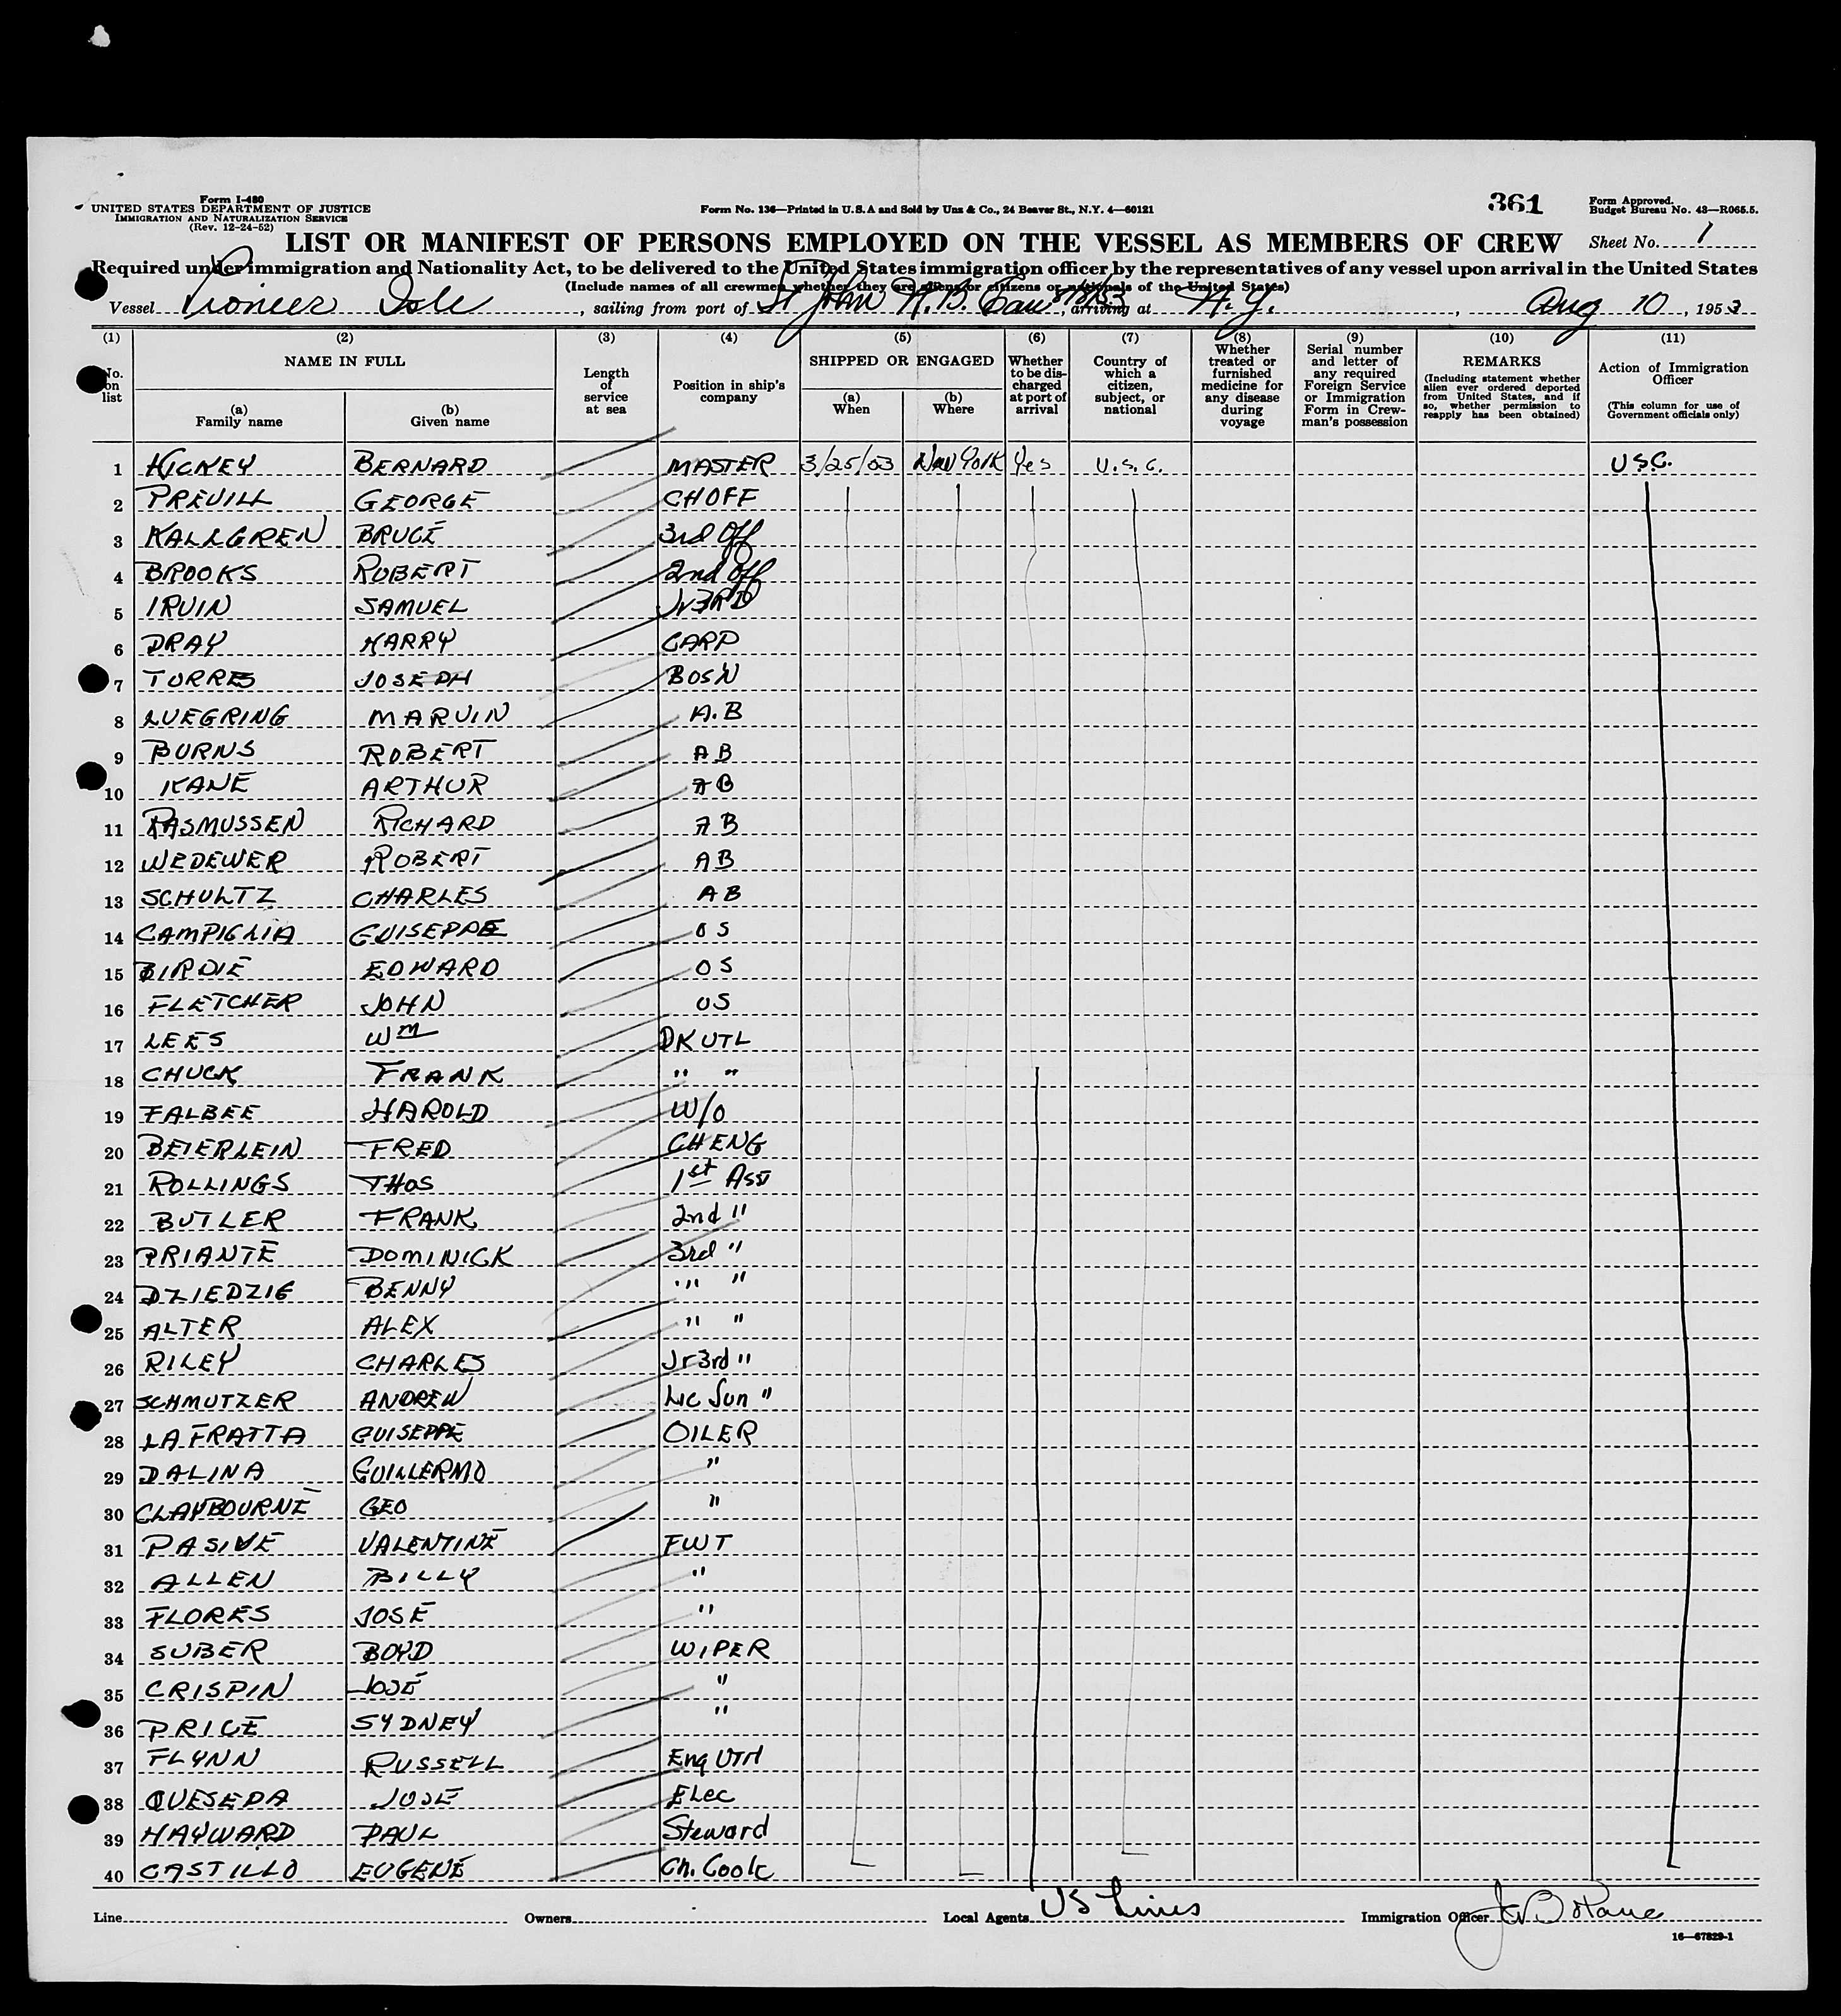 Form I-480
UNITED STATES DEPARTMENT OF JUSTICE
IMMIGRATION AND NATURALIZATION SERVICE
(Rev. 12-24-52)
Form No. 136—Printed in U.S.A and Sold by Unz & Co., 24 Beaver St., N.Y. 4—60121
361
Form Approved.
Budget Bureau No. 43—R065.5.
LIST OR MANIFEST OF PERSONS EMPLOYED ON THE VESSEL AS MEMBERS OF CREW
Sheet No. 1
Required under immigration and Nationality Act, to be delivered to the United States immigration officer by the representatives of any vessel upon arrival in the United States
(Include names of all crewmen whether they are aliens or citizens or nationals of the United States)
Vessel Pioneer Isle, sailing from port of St John N.B. Can 8/8/53, arriving at N.Y., Aug 10, 1953
(1) (2) (3) (4) (5) (6) (7) (8) (9) (10) (11)
No. on list
NAME IN FULL
(a) Family name
(b) Given name
Length of service at sea
Position in ship's company
SHIPPED OR ENGAGED
(a) When
(b) Where
Whether to be discharged at port of arrival
Country of which a citizen, subject, or national
Whether treated or furnished medicine for any disease during voyage
Serial number and letter of any required Foreign Service or Immigration Form in Crewman's possession
REMARKS
(Including statement whether alien ever ordered deported from United States, and if so, whether permission to reapply has been obtained)
Action of Immigration Officer
(This column for use of Government officials only)
1 HICKEY BERNARD MASTER 3/25/53 New York Yes U.S.C. USC.
2 PREVILL GEORGE CHOFF
3 KALLGREN BRUCE 3rd Off
4 BROOKS ROBERT 2nd Off
5 IRVIN SAMUEL Jr 3RD
6 DRAY HARRY CARP
7 TORRES JOSEPH BOS'N
8 LUEGRING MARVIN A.B
9 BURNS ROBERT AB
10 KANE ARTHUR AB
11 RASMUSSEN RICHARD AB
12 WEDEWER ROBERT AB
13 SCHULTZ CHARLES AB
14 CAMPIGLIA GUISEPPE OS
15 BIRDIE EDWARD OS
16 FLETCHER JOHN OS
17 LEES Wm DK UTL
18 CHUCK FRANK " "
19 FALBEE HAROLD W/O
20 BEIERLEIN FRED CHENG
21 ROLLINGS THOS 1st Asst
22 BUTLER FRANK 2nd "
23 PRIANTE DOMINICK 3rd "
24 DZIEDZIG BENNY " "
25 ALTER ALEX " "
26 RILEY CHARLES Jr 3rd "
27 SCHMUTZER ANDREW Lic Jun "
28 LA FRATTA GUISEPPE OILER
29 DALINA GUILLERMO "
30 CLAYBOURNE GEO "
31 PASIVE VALENTINE FWT
32 ALLEN BILLY "
33 FLORES JOSE "
34 SUBER BOYD WIPER
35 CRISPIN JOSE "
36 PRICE SYDNEY "
37 FLYNN RUSSELL Eng Utl
38 QUESEDA JOSE Elec
39 HAYWARD PAUL Steward
40 CASTILLO EUGENE Ch. Cook
Line Owners Local Agents US Lines Immigration Officer
16—67829-1